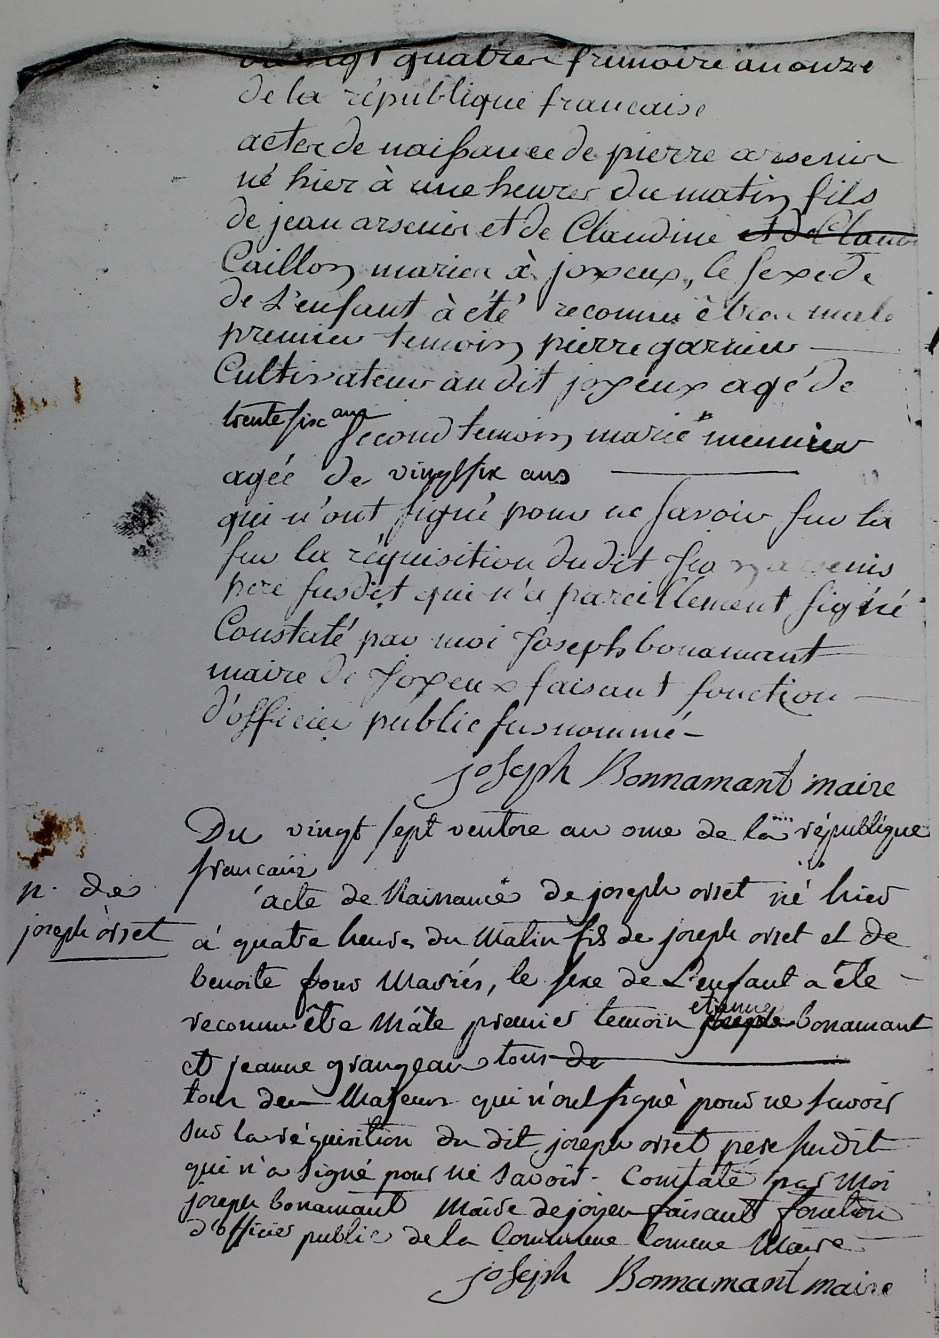 du vingt quatre frimaire an onze
de la république francaise
acte de naissance de pierre arsenier
né hier à une heure du matin fils
de jean arsenier et de Claudine et de Claudi
Caillon mariée à joyeux, le sexe de
de L'enfant à été reconnu être male
premier temoin pierre garnier
Cultivateur au dit joyeux agé de
trente six ans second temoin marie meunier
agée de vingt six ans
qui n'ont signé pour ne savoir sur la
sur la réquisition du dit jean arsenis
pere susdit qui n'a pareillement signé
Constaté par moi Joseph bonamant
maire de Joyeux faisant fonction
d'officier public susnommé
joseph Bonnamant maire
Du vingt sept ventose an onze de la république
francaise
n. de
joseph orset
acte de Naissance de joseph orset né hier
à quatre heures du Matin fils de joseph orset et de
benoite Mariés, le sexe de L'enfant a été
reconnu être Mâle premier temoin etienne joseph bonamant
et jeanne grangean tous de
tous deux Majeurs qui n'ont signé pour ne savoir
sur la réquisition du dit joseph orset pere susdit
qui n'a signé pour ne savoir. Constaté par Moi
joseph bonamant Maire de joyeu faisant fonction
d'officier public de la Commune Comme Maire
joseph Bonnamant maire